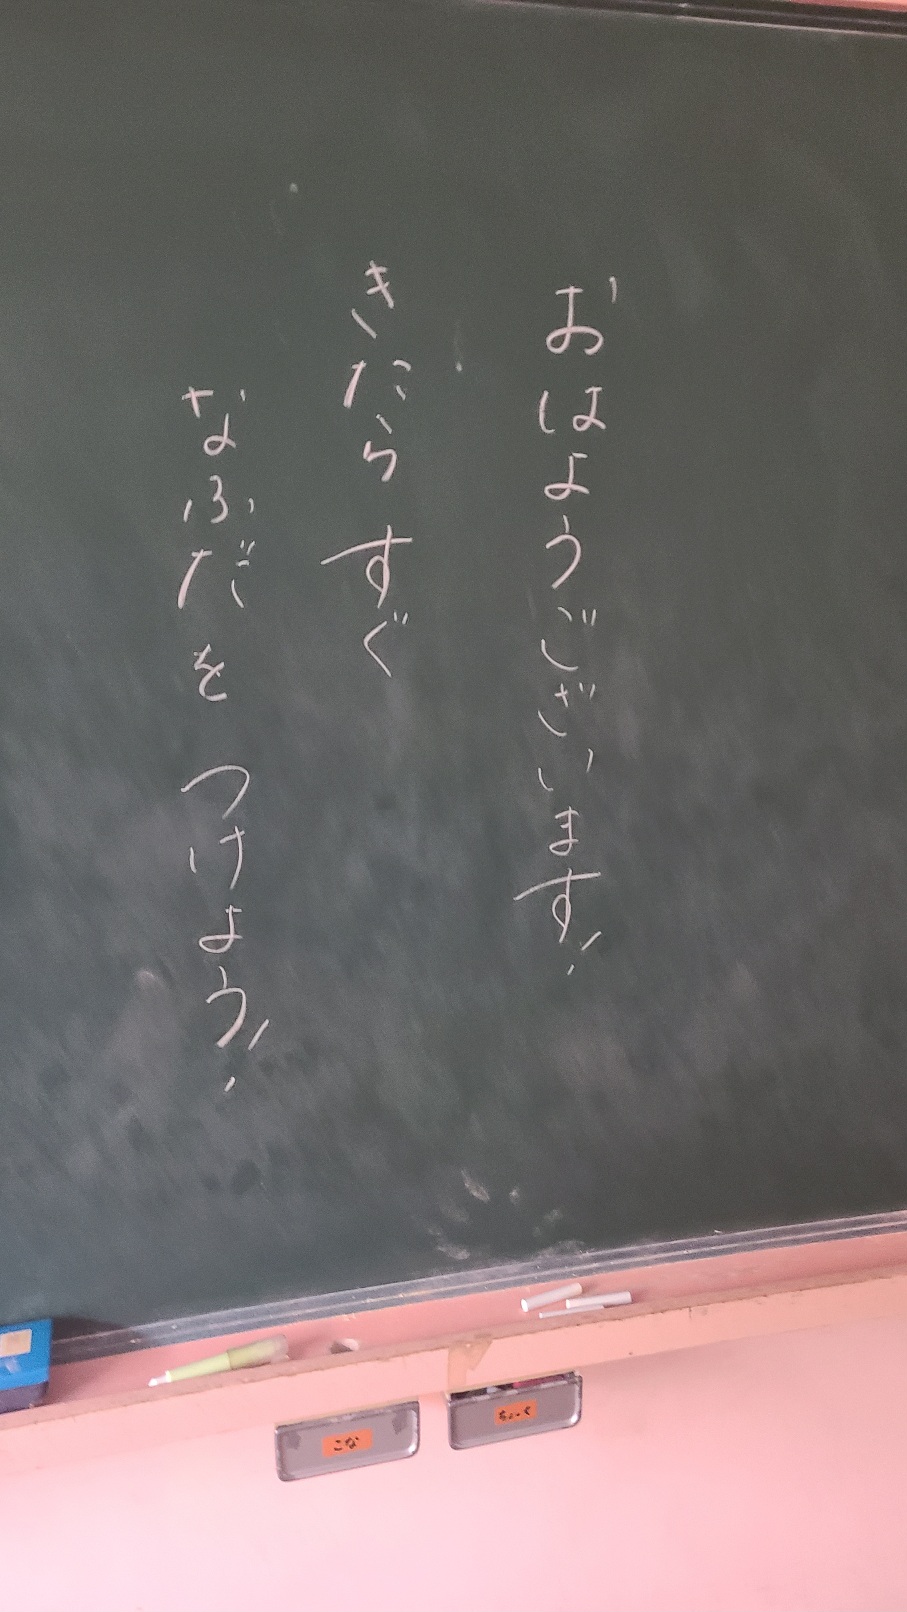 おはようございます!
きたら すぐ
なふだを つけよう!
こな
ちょーく